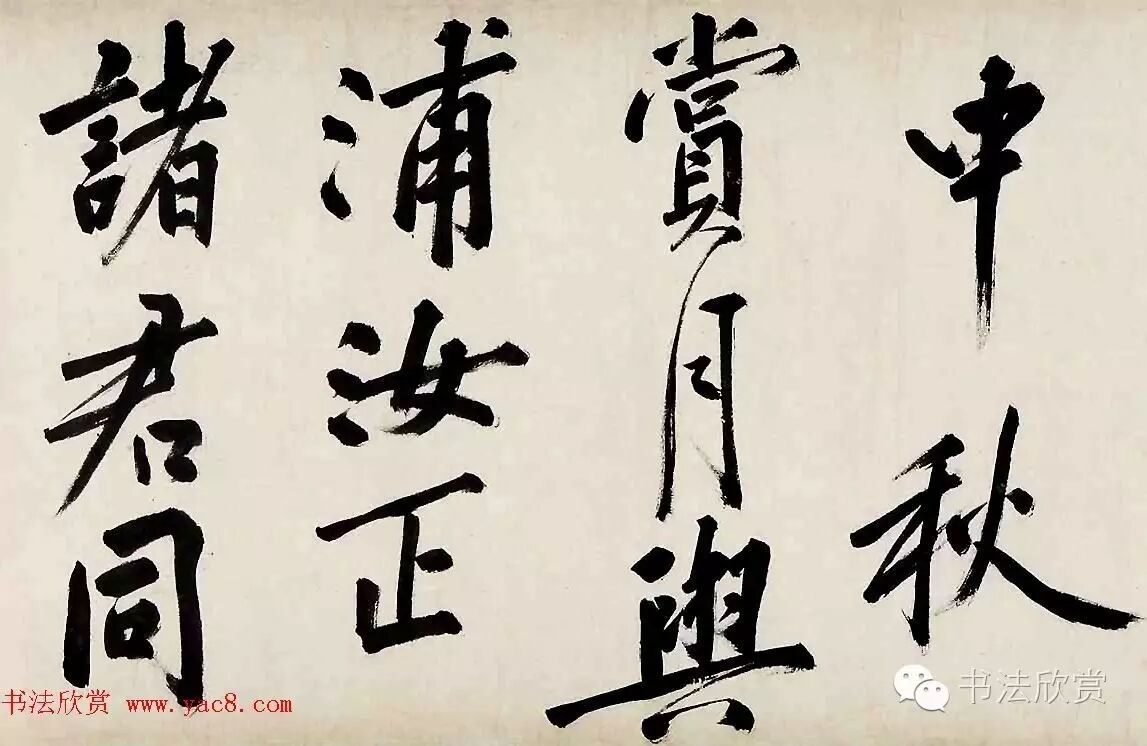 中秋
賞月與
浦汝正
諸君同
书法欣赏 www.yac8.com
书法欣赏